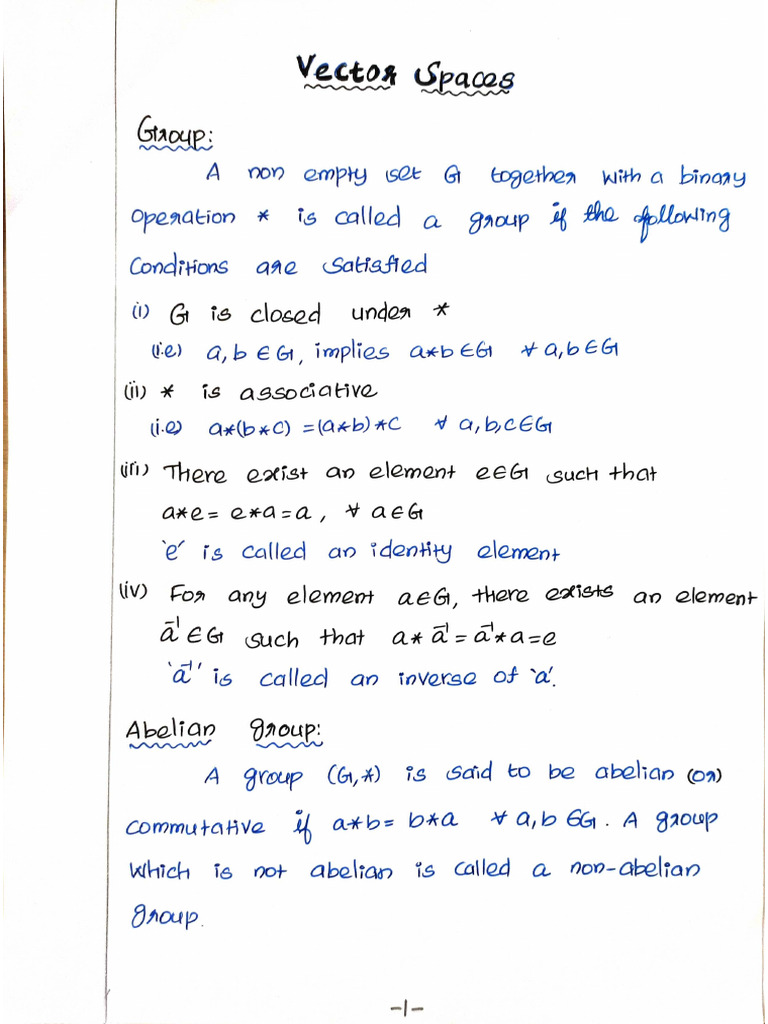 Vector Spaces
Group:
A non empty set G together with a binary
operation * is called a group if the following
conditions are satisfied
(i) G is closed under *
(i.e) a, b ∈ G, implies a*b ∈ G ∀ a, b ∈ G
(ii) * is associative
(i.e) a*(b*c) = (a*b)*c ∀ a, b, c ∈ G
(iii) There exist an element e∈G such that
a*e = e*a = a, ∀ a∈G
'e' is called an identity element
(iv) For any element a∈G, there exists an element
a⁻¹ ∈ G such that a * a⁻¹ = a⁻¹ * a = e
'a⁻¹' is called an inverse of 'a'.
Abelian group:
A group (G,*) is said to be abelian (or)
commutative if a*b = b*a ∀ a, b ∈ G. A group
which is not abelian is called a non-abelian
group.
-1-